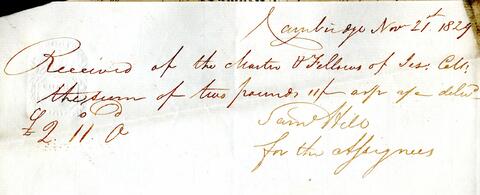 Cambridge Nov 21st 1829
Received of the Master & Fellows of Jes. Coll.
the sum of two pounds 11/ as pr a/c deliv'd
£2. 11. 0
for the Assignees